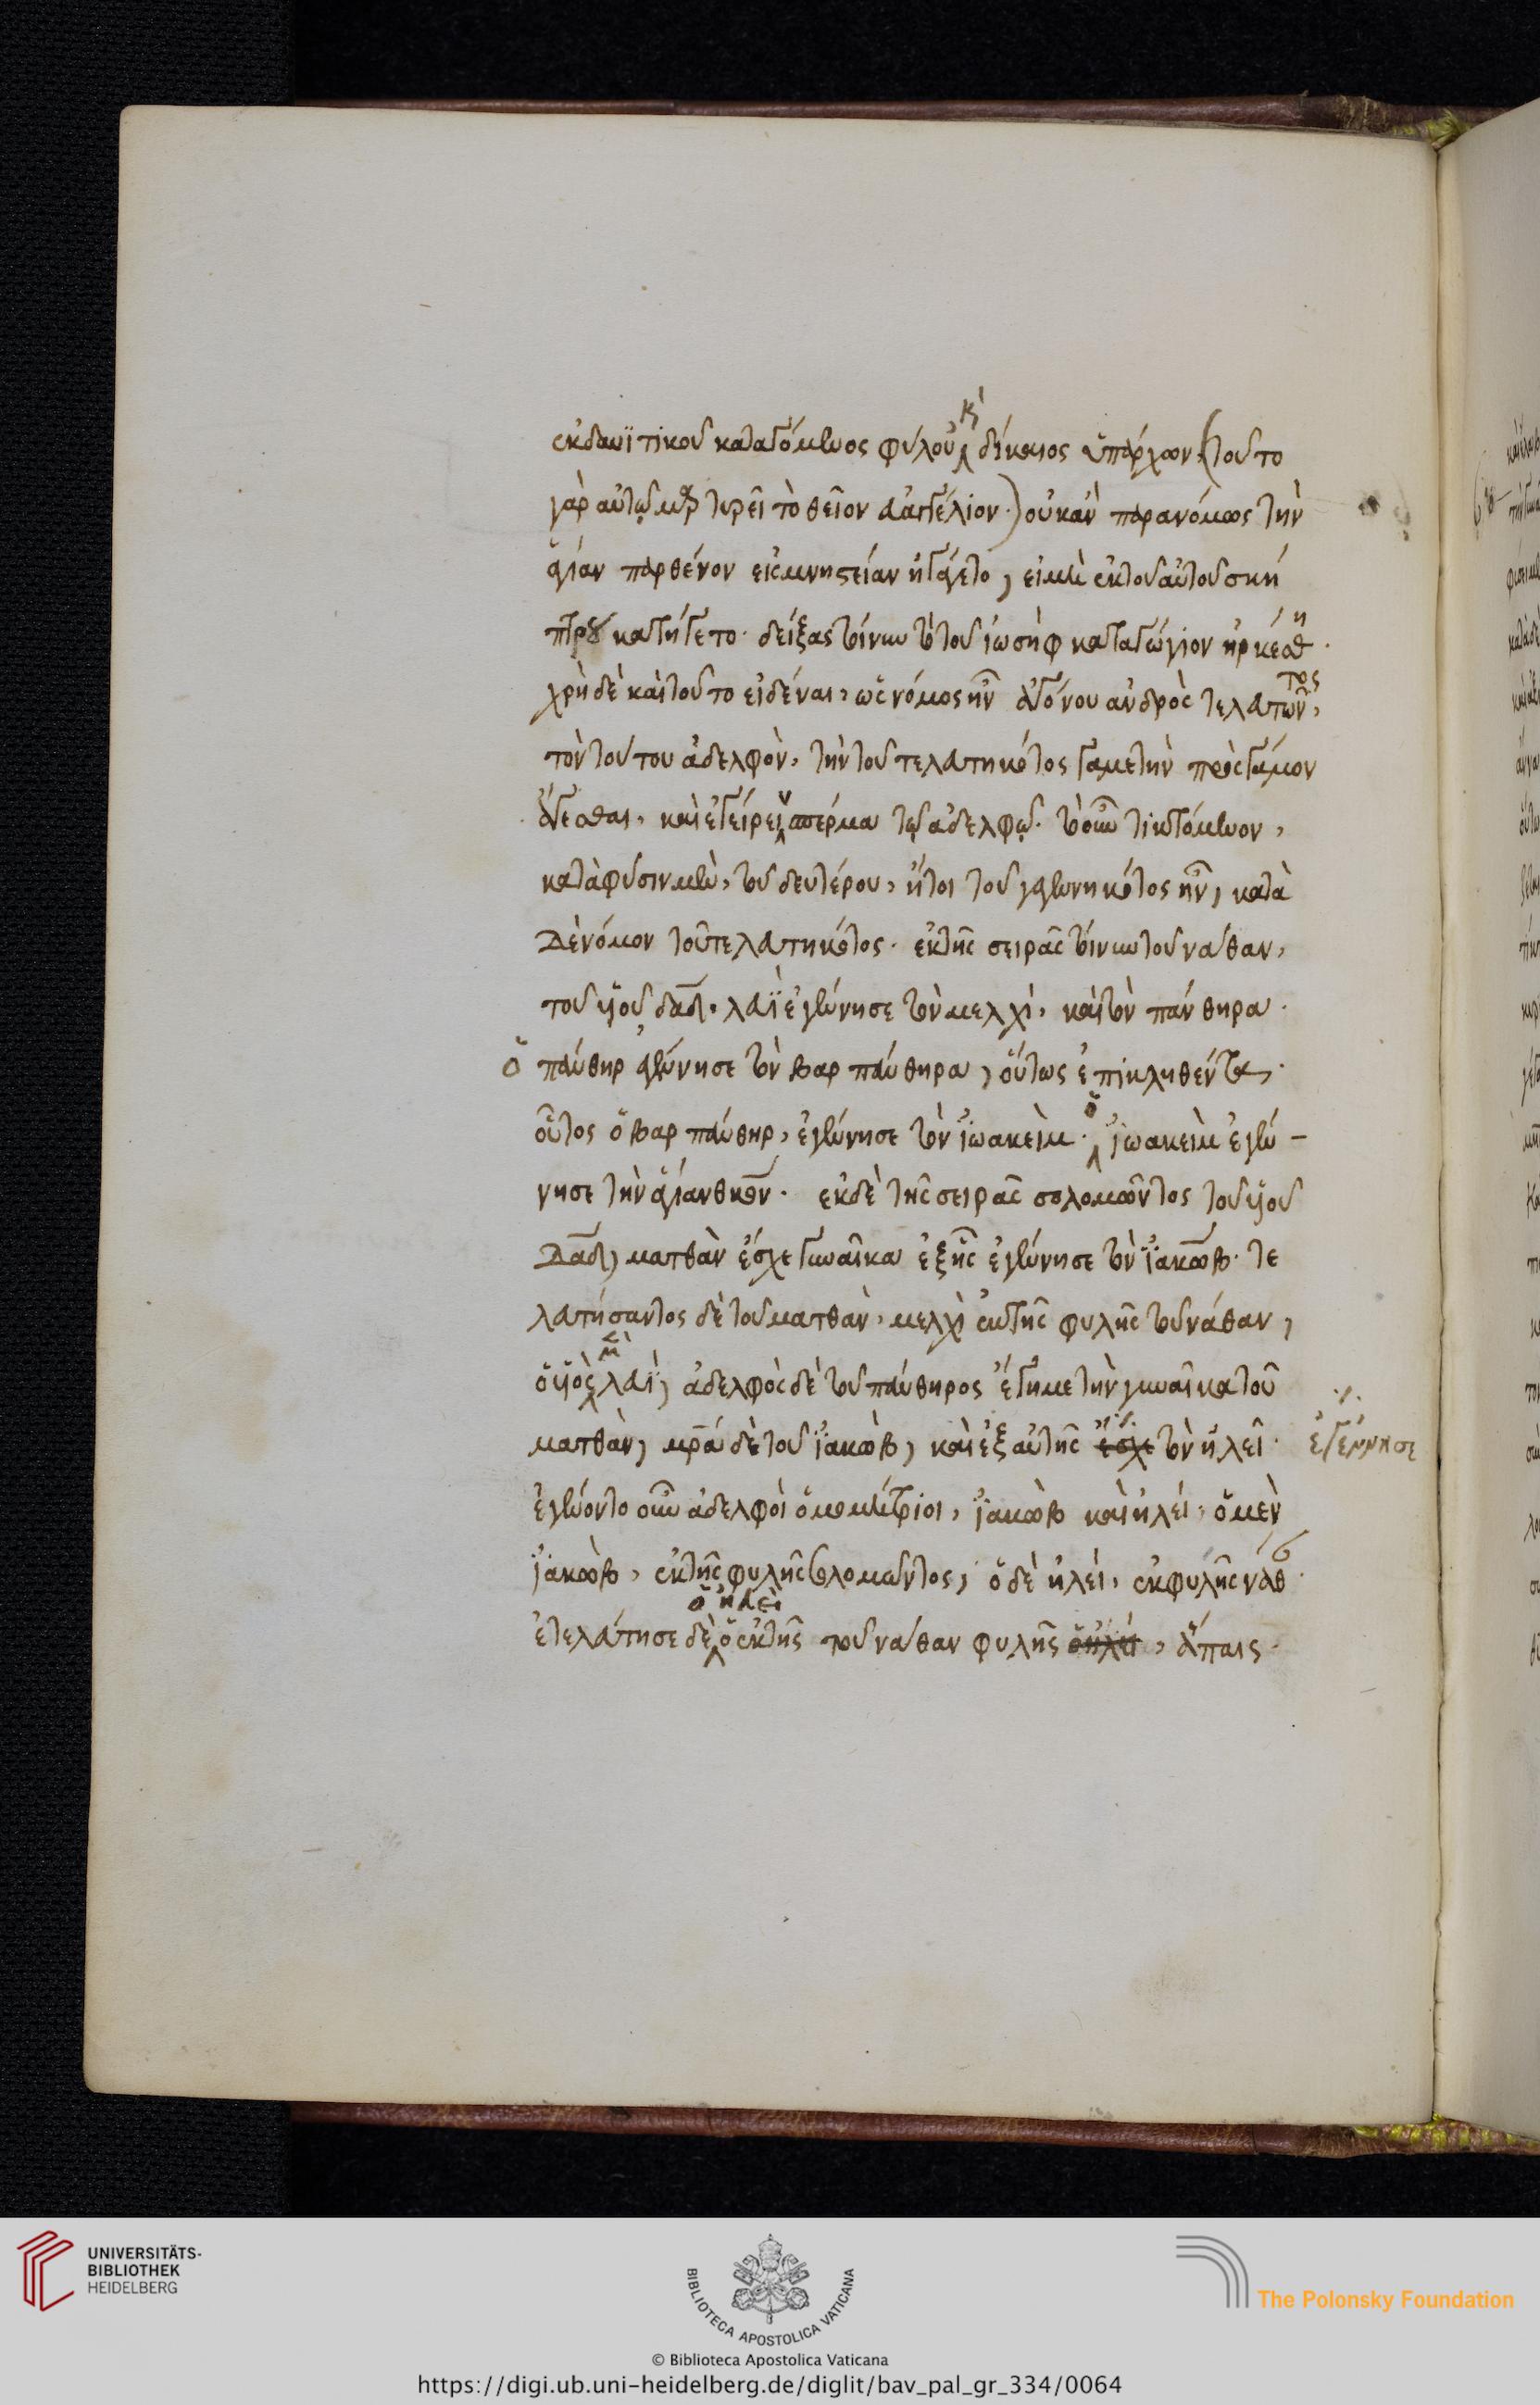 ἐκ δαυϊτικοῦ καταγόμενος φύλου καὶ δίκαιος ὑπάρχων (τοῦτο
γὰρ αὐτῷ μαρτυρεῖ τὸ θεῖον εὐαγγέλιον·) οὐκ ἂν παρανόμως τὴν
ἁγίαν παρθένον εἰς μνηστείαν ἠγάγετο, εἰ μὴ ἐκ τοῦ αὐτοῦ σκή
πτρου κατήγετο· δείξας τοίνυν τὸ τοῦ ἰωσὴφ καταγώγιον ἠρκέσθη·
χρὴ δὲ καὶ τοῦτο εἰδέναι, ὡς νόμος ἦν ἀγόνου ἀνδρὸς τελευτῶντος,
τὸν τούτου ἀδελφὸν, τὴν τοῦ τελευτηκότος γαμετὴν πρὸς γάμον
ἄγεσθαι, καὶ ἐγείρειν σπέρμα τῷ ἀδελφῷ· τὸ οὖν τικτόμενον,
κατὰ φύσιν μὲν, τοῦ δευτέρου, ἤτοι τοῦ γεγεννηκότος ἦν, κατὰ
δὲ νόμον τοῦ τελευτηκότος· ἐκ τῆς σειρᾶς τοίνυν τοῦ νάθαν,
τοῦ υἱοῦ δαδ· λευῒ ἐγέννησε τὸν μελχὶ, καὶ τὸν πάνθηρα·
ὁ πάνθηρ ἐγέννησε τὸν βαρ πάνθηρα, οὕτως ἐπικληθέντα·
οὗτος ὁ βαρ πάνθηρ, ἐγέννησε τὸν ἰωακεὶμ· ὁ ἰωακεὶμ ἐγέν-
νησε τὴν ἁγίαν θκον· ἐκ δὲ τῆς σειρᾶς σολομῶντος τοῦ υἱοῦ
δαδ, ματθὰν ἔσχε γυναῖκα ἐξ ἧς ἐγέννησε τὸν ἰακὼβ· τε
λευτήσαντος δὲ τοῦ ματθὰν, μελχὶ ἐκ τῆς φυλῆς τοῦ νάθαν,
ὁ υἱὸς μὲν λευῒ, ἀδελφὸς δὲ τοῦ πάνθηρος ἔγημε τὴν γυναῖκα τοῦ
ματθὰν, μρα δὲ τοῦ ἰακὼβ, καὶ ἐξ αὐτῆς ἔσχε τὸν ἡλεὶ· ἐγέννησε
ἐγένοντο οὖν ἀδελφοὶ ὁμομήτριοι, ἰακὼβ καὶ ἡλεί, ὁ μὲν
ἰακὼβ, ἐκ τῆς φυλῆς σολομῶντος, ὁ δὲ ἡλεί, ἐκ φυλῆς νάθ·
ἐτελεύτησε δὲ ὁ ἡλεὶ ὁ ἐκ τῆς τοῦ νάθαν φυλῆς ὁ ἡλεί, ἄπαις·
UNIVERSITÄTS-
BIBLIOTHEK
HEIDELBERG
BIBLIOTECA APOSTOLICA VATICANA
The Polonsky Foundation
© Biblioteca Apostolica Vaticana
https://digi.ub.uni-heidelberg.de/diglit/bav_pal_gr_334/0064